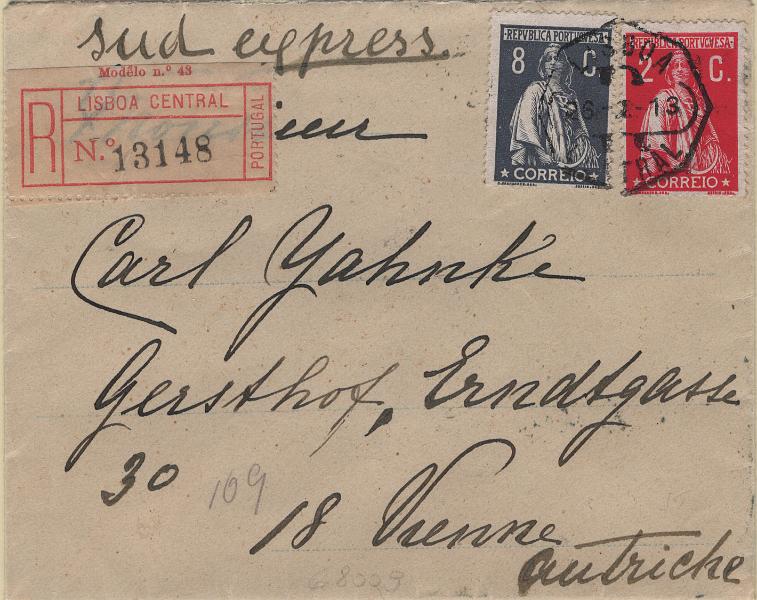 Sud express.
Modêlo n.º 43
R
LISBOA CENTRAL
N.º 13148
PORTUGAL
REPVBLICA PORTVGVESA
8 C.
CORREIO
REPVBLICA PORTVGVESA
2 C.
CORREIO
Carl Yahnke
Gersthof, Erndtgasse
30
109
18 Vienne
Autriche